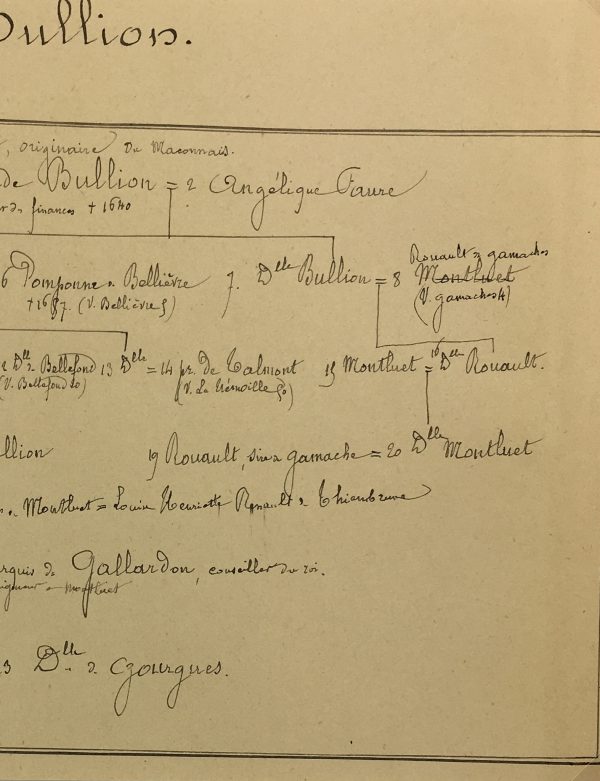 Bullion.
, originaire du Maconnais.
de Bullion = 2 Angélique Faure
finances + 1640
Rouault de gamaches
6 Pomponne de Bellièvre 7. Dlle Bullion = 8 Montluet
(V. Bellièvre 5) (V. gamaches 4)
Dlle de Bellefond 13 Dlle = 14 pr. de Talmont 15 Montluet = 16 Dlle Rouault.
(V. Bellefond 20) (V. La Trémoille 50)
llion 19 Rouault, sire de gamache = 20 Dlle Montluet
de Montluet = Louise Henriette Rouault de Thiembrune
rquis de Gallardon, conseiller du roi.
Montluet
3 Dlle de Gourgues.